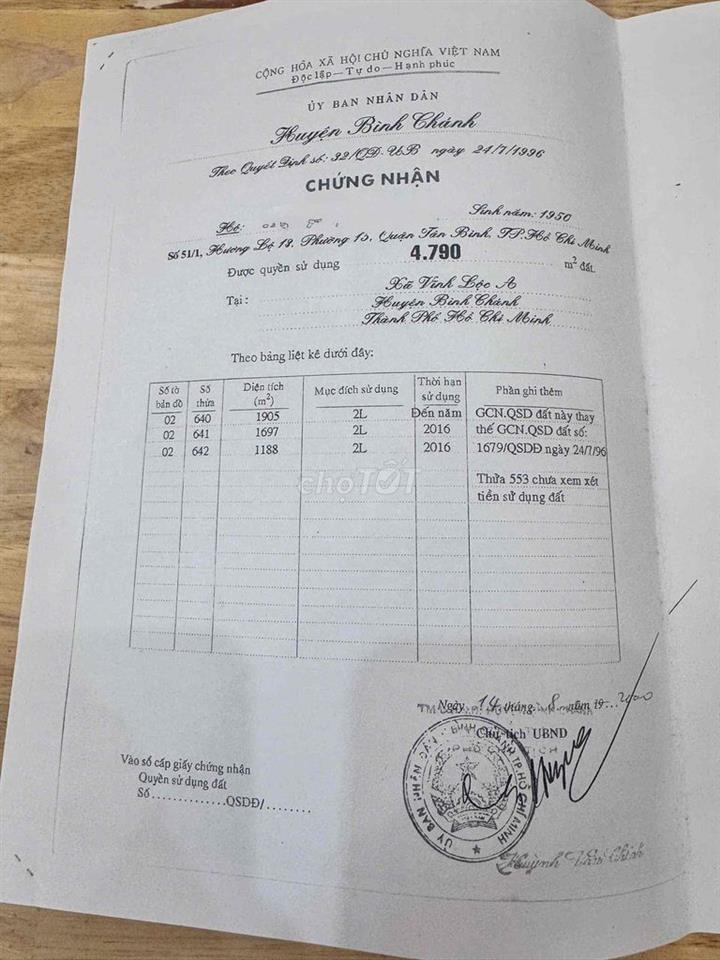 CỘNG HÒA XÃ HỘI CHỦ NGHĨA VIỆT NAM
Độc lập — Tự do — Hạnh phúc
ỦY BAN NHÂN DÂN
Huyện Bình Chánh
Theo Quyết Định số: 32/QĐ-UB ngày 24/7/1996
CHỨNG NHẬN
Hộ: Sinh năm: 1950
Số 51/1, Hương Lộ 13, Phường 15, Quận Tân Bình, TP.Hồ Chí Minh
Được quyền sử dụng 4.790 m² đất.
Tại: Xã Vĩnh Lộc A
Huyện Bình Chánh
Thành Phố Hồ Chí Minh
Theo bảng liệt kê dưới đây:
Số tờ bản đồ Số thửa Diện tích (m²) Mục đích sử dụng Thời hạn sử dụng Phần ghi thêm
02 640 1905 2L Đến năm GCN.QSD đất này thay
02 641 1697 2L 2016 thế GCN.QSD đất số:
02 642 1188 2L 2016 1679/QSDĐ ngày 24/7/96
Thửa 553 chưa xem xét
tiền sử dụng đất
chợTỐT
Ngày 14 tháng 8 năm 19 2000
TM.
Chủ tịch UBND
ỦY BAN NHÂN DÂN BÌNH CHÁNH TP. HỒ CHÍ MINH
Vào sổ cấp giấy chứng nhận
Quyền sử dụng đất
Số..............QSDĐ/.........
Huỳnh Văn Chính